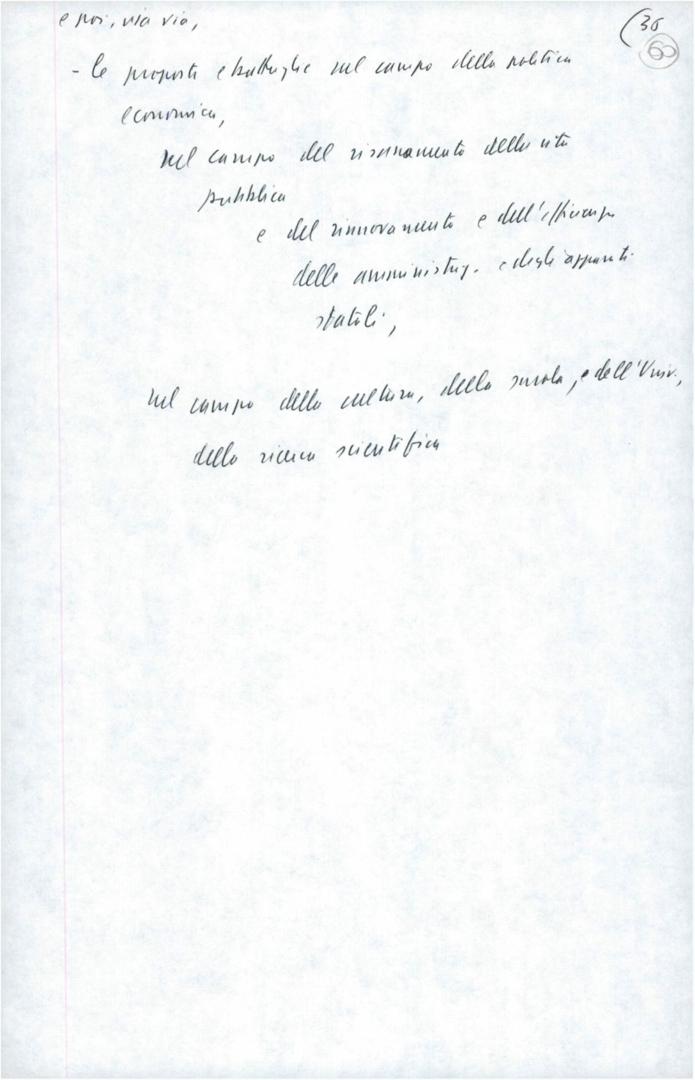 e poi, via via,
(36
60
- le proposte e battaglie nel campo della politica
economica,
nel campo del risanamento della vita
pubblica
e del rinnovamento e dell'efficienza
delle amministraz. e degli apparati
statali,
nel campo della cultura, della scuola, e dell'Univ.,
della ricerca scientifica